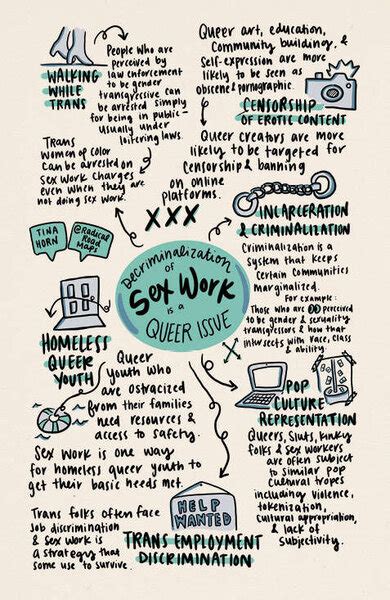 WALKING
WHILE
TRANS
People who are
perceived by
law enforcement
to be gender
transgressive can
be arrested simply
for being in public-
usually under
loitering laws.
Trans
Women of color
can be arrested on
Sex Work charges
even when they are
not doing sex work.
Queer art, education,
Community building, &
Self-expression are more
likely to be seen as
obscene & pornographic.
CENSORSHIP
OF EROTIC CONTENT
Queer creators are more
likely to be targeted for
censorship & banning
on online
platforms.
XXX
TINA
HORN
@Radical
Road
Maps
INCARCERATION
& CRIMINALIZATION
Criminalization is a
system that keeps
certain communities
marginalized.
For example:
Those who are perceived
to be gender & sexuality
transgressors & how that
intersects with race, class
& ability.
Decriminalization
of
Sex Work
is a
QUEER ISSUE
HOMELESS
QUEER
YOUTH
Queer
youth who
are ostracized
from their families
need resources &
access to safety.
Sex work is one way
for homeless queer youth to
get their basic needs met.
POP
CULTURE
REPRESENTATION
Queers, Sluts, kinky
folks & Sex workers
are often subject
to similar pop
cultural tropes
including violence,
tokenization,
cultural appropriation,
& lack of
subjectivity.
HELP
WANTED
Trans folks often face
Job discrimination
& Sex work is
a strategy that
some use to survive.
TRANS EMPLOYMENT
DISCRIMINATION